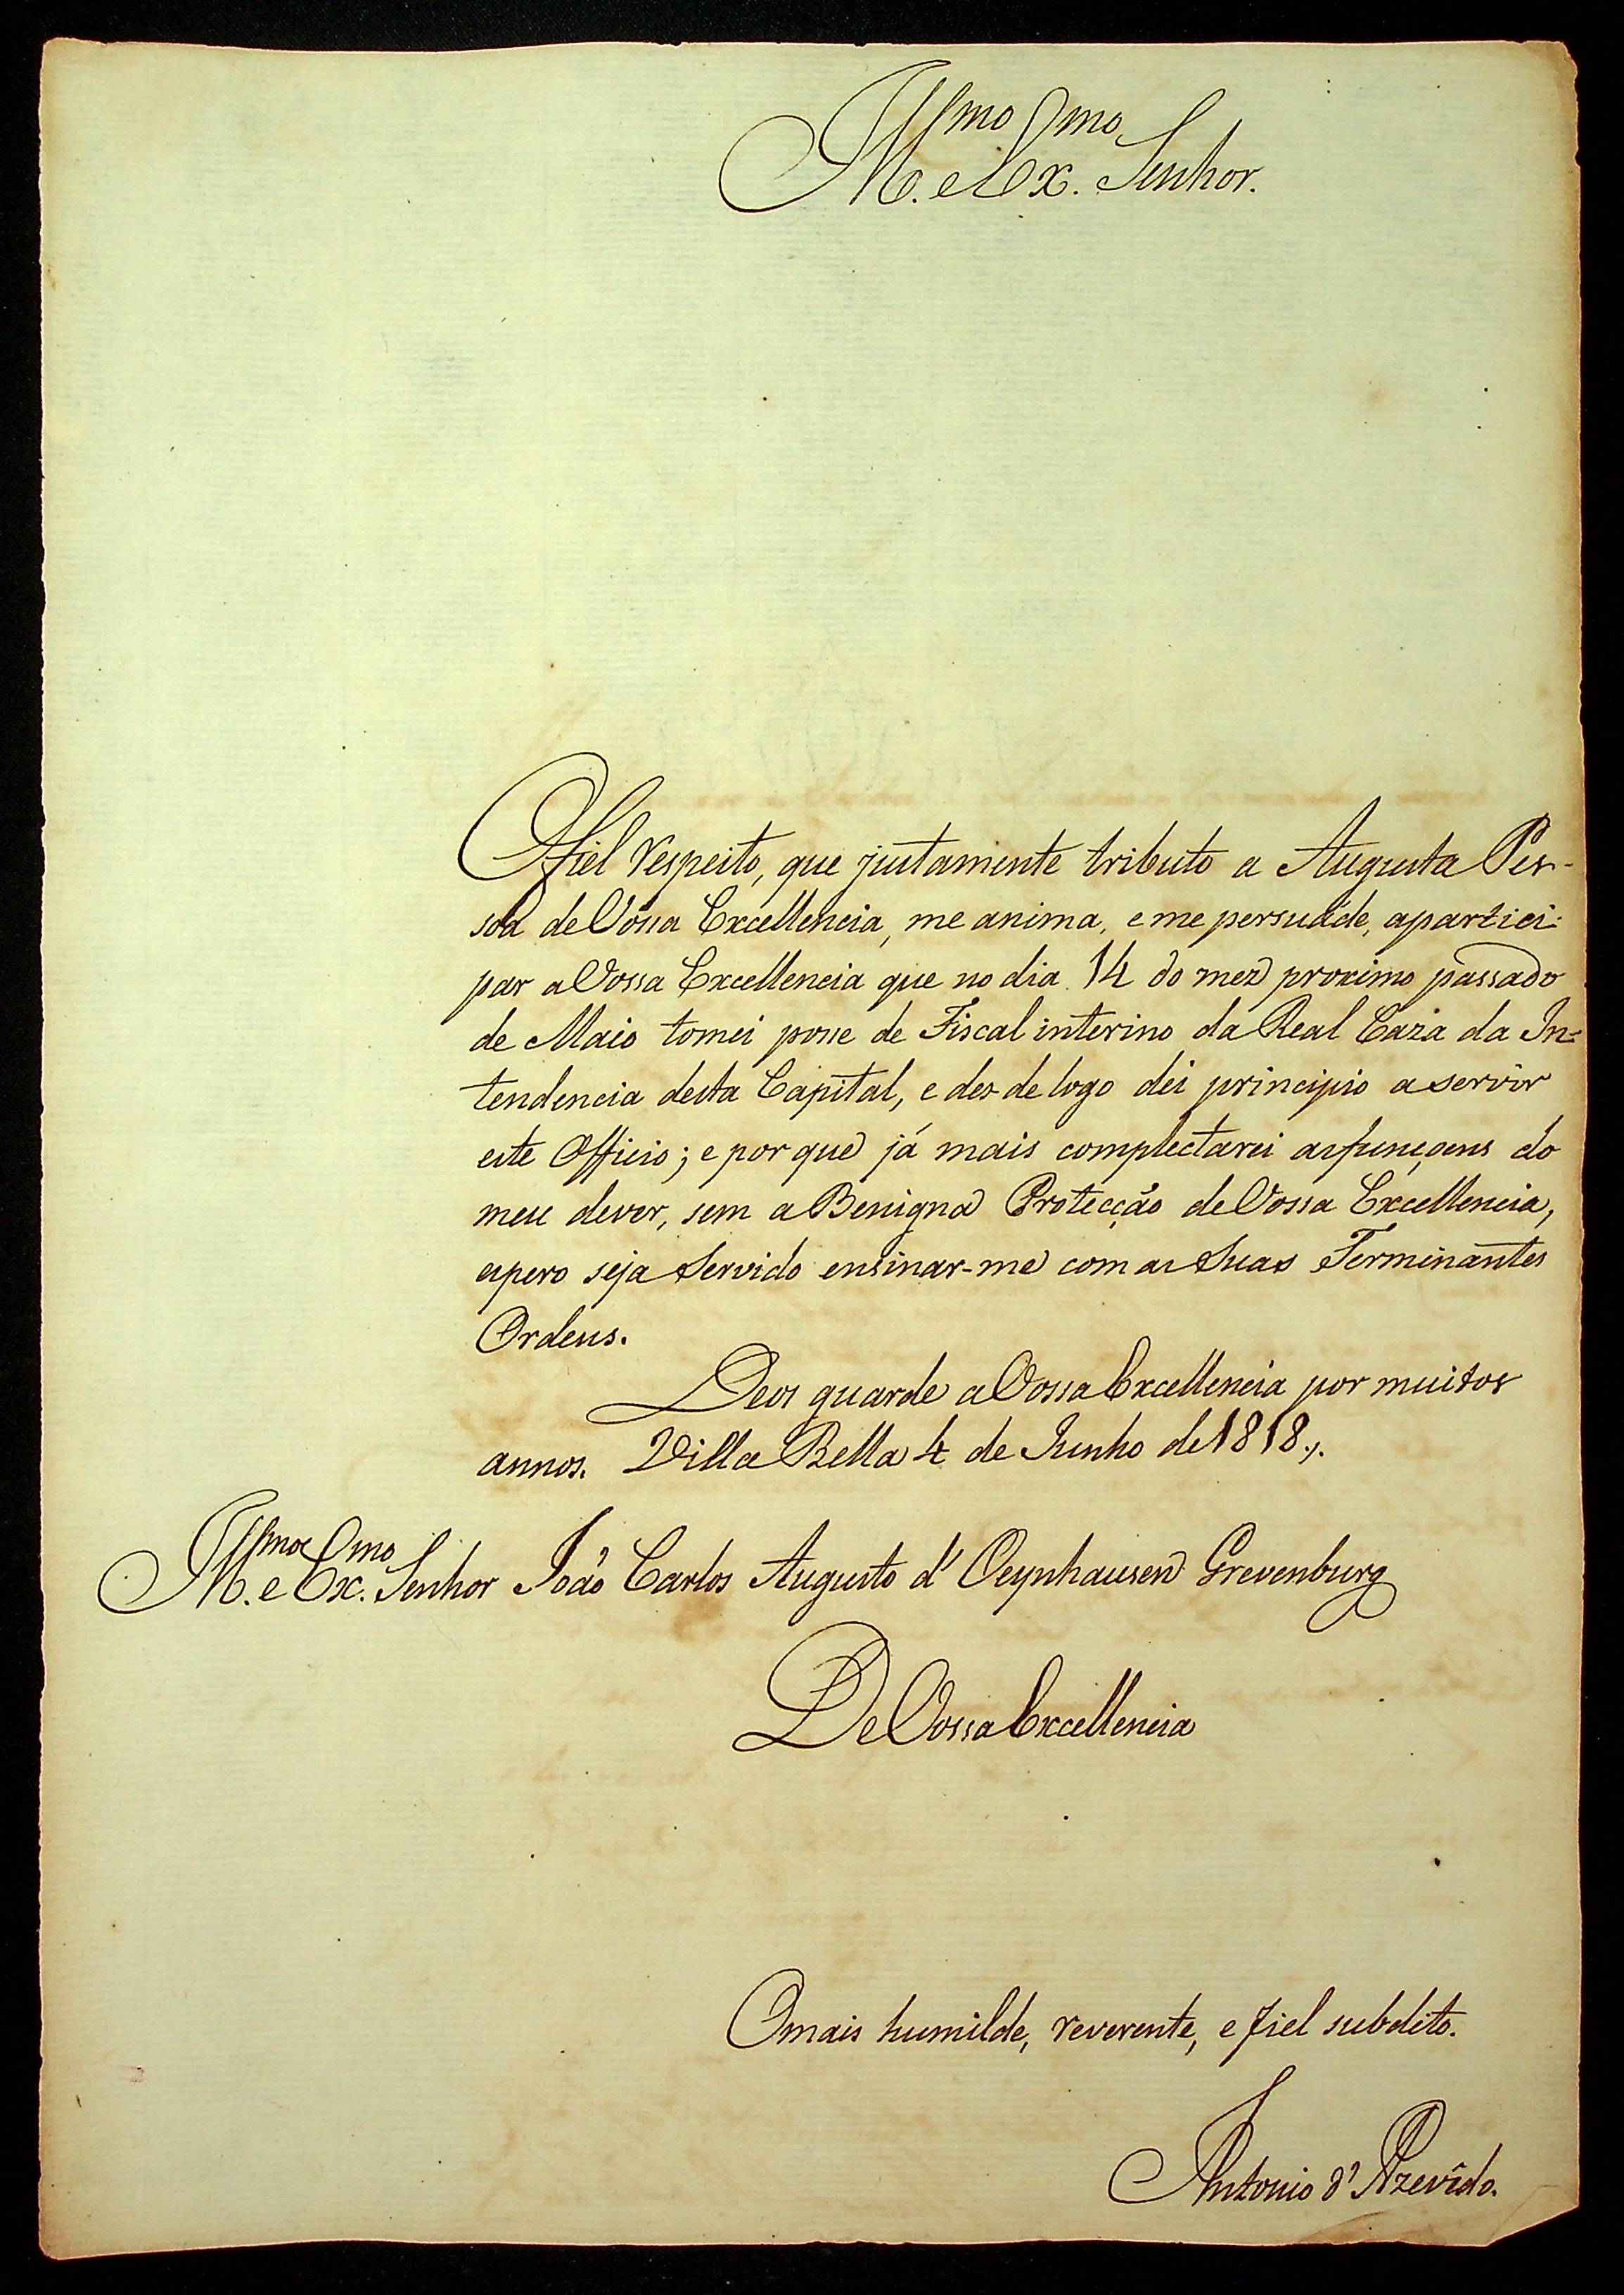 Ill.mo e Ex.mo Senhor.
O fiel respeito, que justamente tributo a Augusta Pes-
soa de Vossa Excellencia, me anima, e me persuáde, a partici-
par a Vossa Excellencia que no dia 14 do mez proximo passado
de Maio tomei posse de Fiscal interino da Real Caza da In-
tendencia desta Capital, e des de logo dei principio a servir
este Officio; e por que já mais complectarei as funçoens do
meu dever, sem a Benigna Protecção de Vossa Excellencia,
espero seja Servido ensinar-me com as Suas Terminantes
Ordens.
Deos guarde a Vossa Excellencia por muitos
annos. Villa Bella 4 de Junho de 1818.
Ill.mo e Ex.mo Senhor João Carlos Augusto d' Oeynhausen Grevenburg
De Vossa Excellencia
O mais humilde, reverente, e fiel subdito.
Antonio d' Azevêdo.